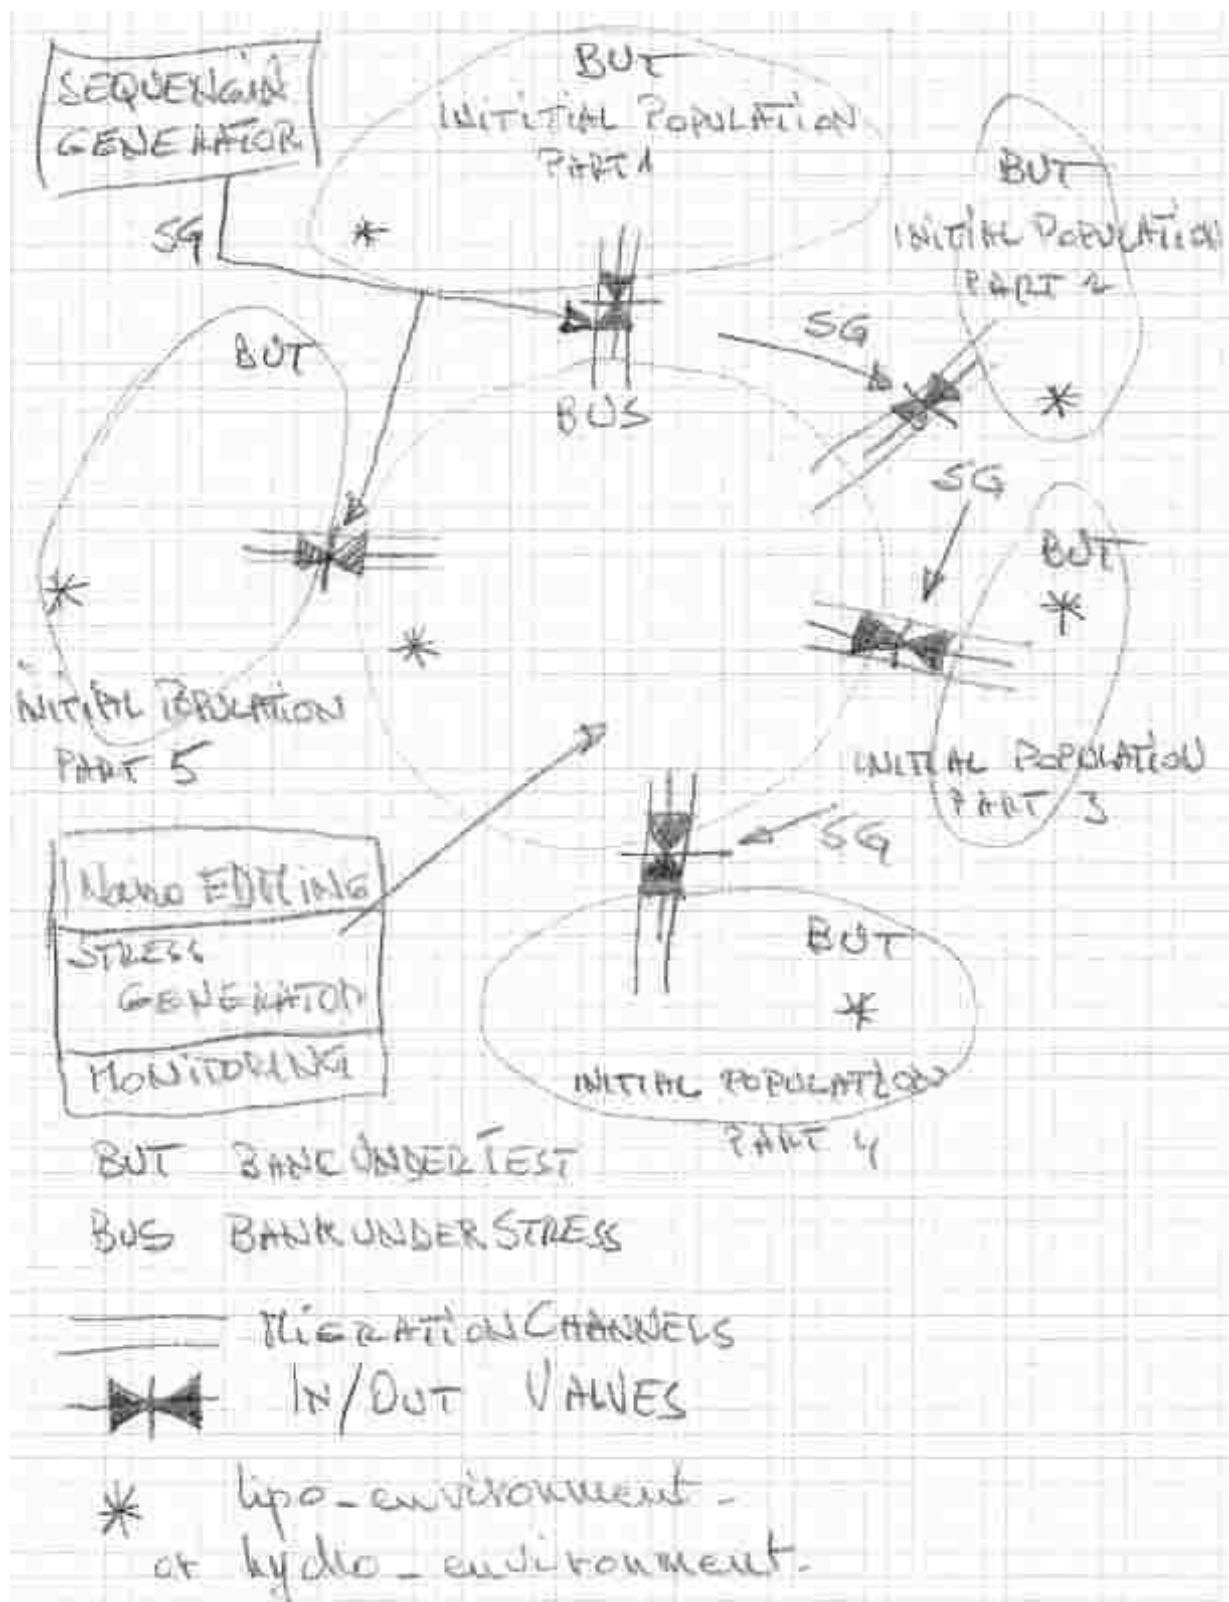 SEQUENCIN
GENERATOR
SG
BUT
INITITIAL POPULATION
PART 1
BUT
INITIAL POPULATION
PART 2
SG
BUT
BUS
SG
BUT
INITIAL POPULATION
PART 5
INITIAL POPULATION
PART 3
SG
Nano EDITING
STRESS
GENERATOR
MONITORING
BUT
INITIAL POPULATION
PART 4
BUT BANC UNDER TEST
BUS BANK UNDER STRESS
MIGRATION CHANNELS
IN/OUT VALVES
* lipo-environment-
or hydro-environment.